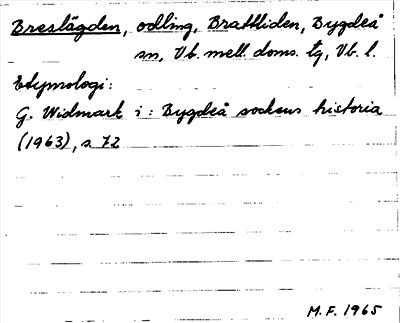 Breslägden, odling, Brattliden, Bygdeå
sn, Vb. mell. doms. tg, Vb. l.
Etymologi:
G. Widmark i: Bygdeå sockens historia
(1963), s 72
M.F. 1965